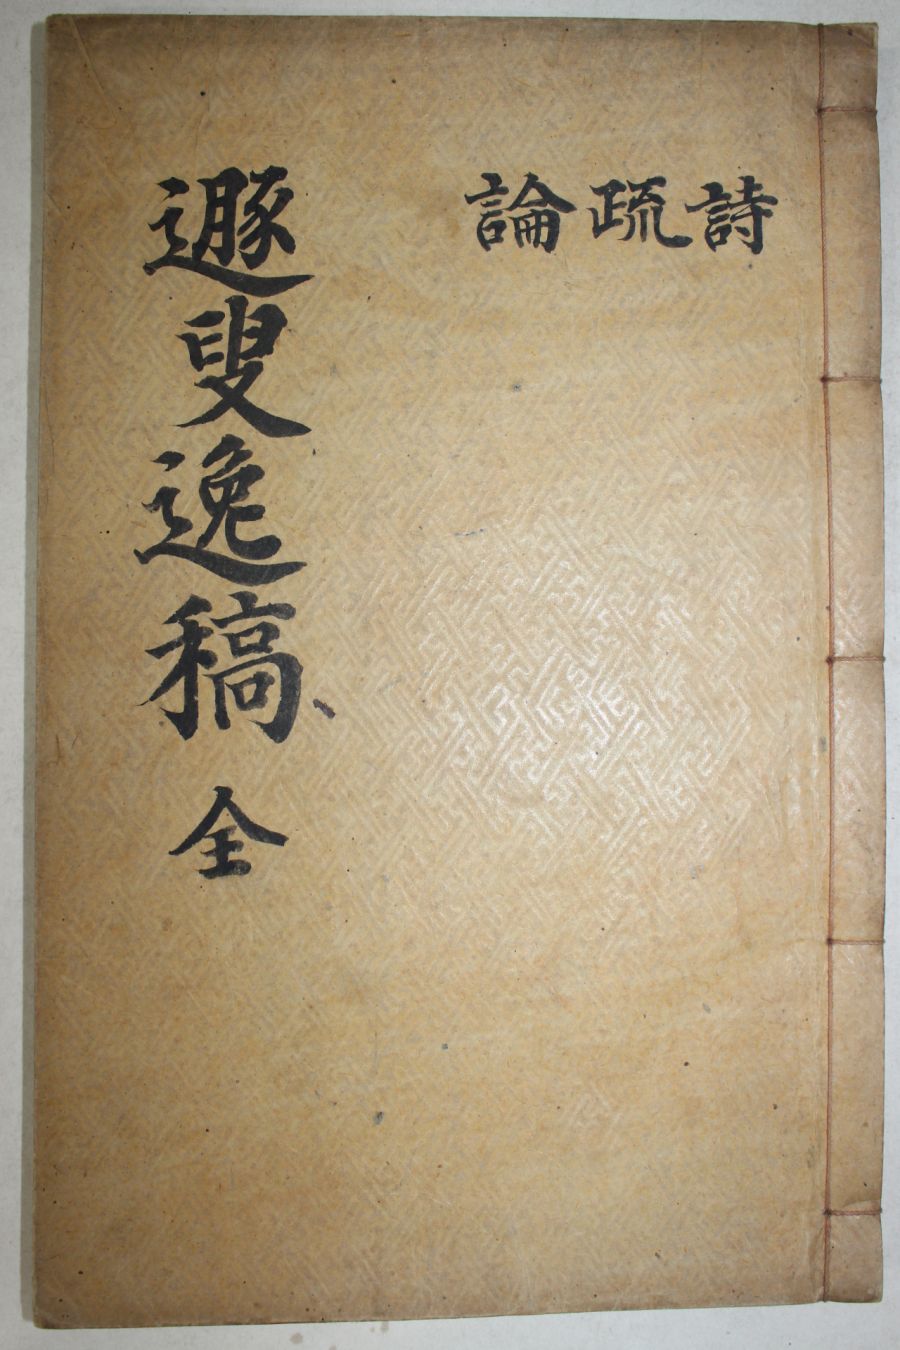 詩疏論
遯叟逸稿 全